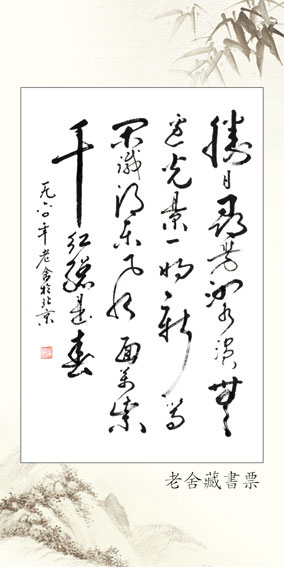 勝日尋芳泗水濱無
邊光景一時新等
閑識得東風面萬紫
千紅總是春
一九六〇年老舍於北京
老舍藏書票